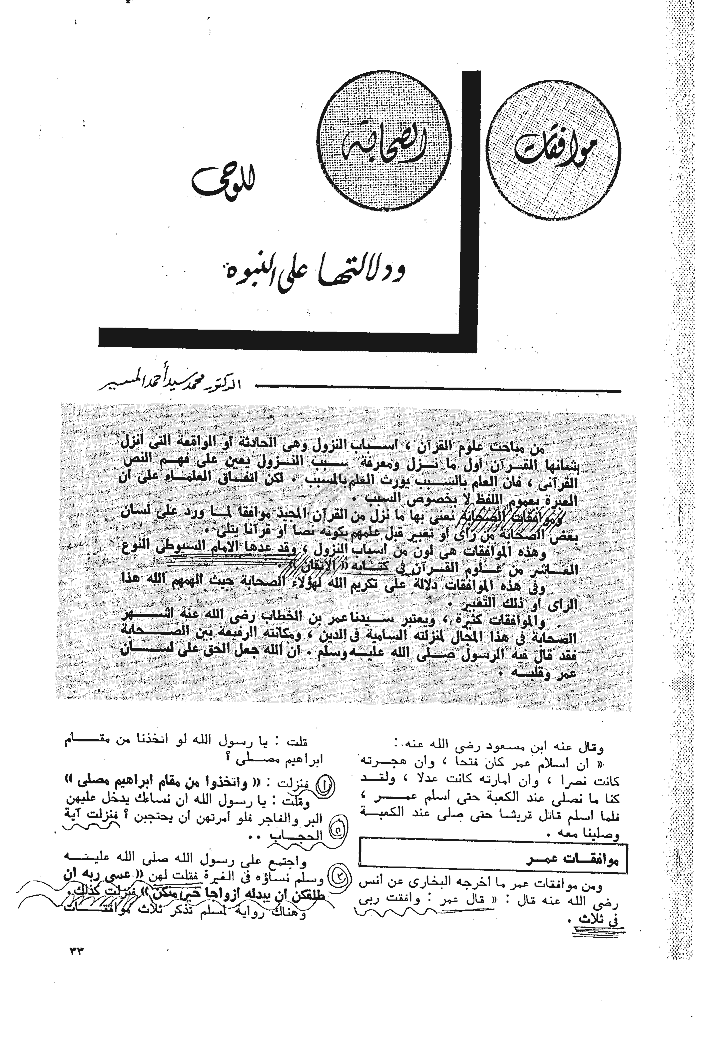 موافقات الصحابة
للوحى
ودلالتها على النبوه
الدكتور محمد سيد أحمد المسير
من مباحث علوم القرآن ، أسباب النزول وهى الحادثة أو الواقعة التى أنزل
بشأنها القرآن أول ما نزل ومعرفة سبب النزول يعين على فهم النص
القرآنى ، فان العلم بالسبب يورث العلم بالمسبب . لكن اتفاق العلماء على أن
العبرة بعموم اللفظ لا بخصوص السبب .
وموافقات الصحابة نعنى بها ما نزل من القرآن المجيد موافقا لما ورد على لسان
بعض الصحابة من رأى أو تعبير قبل علمهم بكونه نصا أو قرآنا يتلى .
وهذه الموافقات هى لون من أسباب النزول ، وقد عدها الامام السيوطى النوع
العاشر من علوم القرآن فى كتابه « الاتقان » .
وفى هذه الموافقات دلالة على تكريم الله لهؤلاء الصحابة حيث الهمهم الله هذا
الرأى أو ذلك التعبير .
والموافقات كثيرة ، ويعتبر سيدنا عمر بن الخطاب رضى الله عنه أشهر
الصحابة فى هذا المجال لمنزلته السامية فى الدين ، ومكانته الرفيعة بين الصحابة
فقد قال فيه الرسول صلى الله عليه وسلم . ان الله جعل الحق على لسان
عمر وقلبه .
وقال عنه ابن مسعود رضى الله عنه :
« ان اسلام عمر كان فتحا ، وان هجرته
كانت نصرا ، وان امارته كانت عدلا ، ولقد
كنا ما نصلى عند الكعبة حتى أسلم عمر ،
فلما أسلم قاتل قريشا حتى صلى عند الكعبة
وصلينا معه .
موافقات عمر
ومن موافقات عمر ما أخرجه البخارى عن أنس
رضى الله عنه قال : « قال عمر : وافقت ربى
فى ثلاث .
قلت : يا رسول الله لو اتخذنا من مقام
ابراهيم مصلى ؟
١ فنزلت : « واتخذوا من مقام ابراهيم مصلى »
وقلت : يا رسول الله ان نساءك يدخل عليهن
البر والفاجر فلو أمرتهن أن يحتجبن ؟ فنزلت آية
الحجاب . .
واجتمع على رسول الله صلى الله عليه
٣ وسلم نساؤه فى الغيرة فقلت لهن « عسى ربه ان
طلقكن أن يبدله أزواجا خيرا منكن » فنزلت كذلك .
وهناك رواية لمسلم تذكر ثلاث موافقات
٣٣